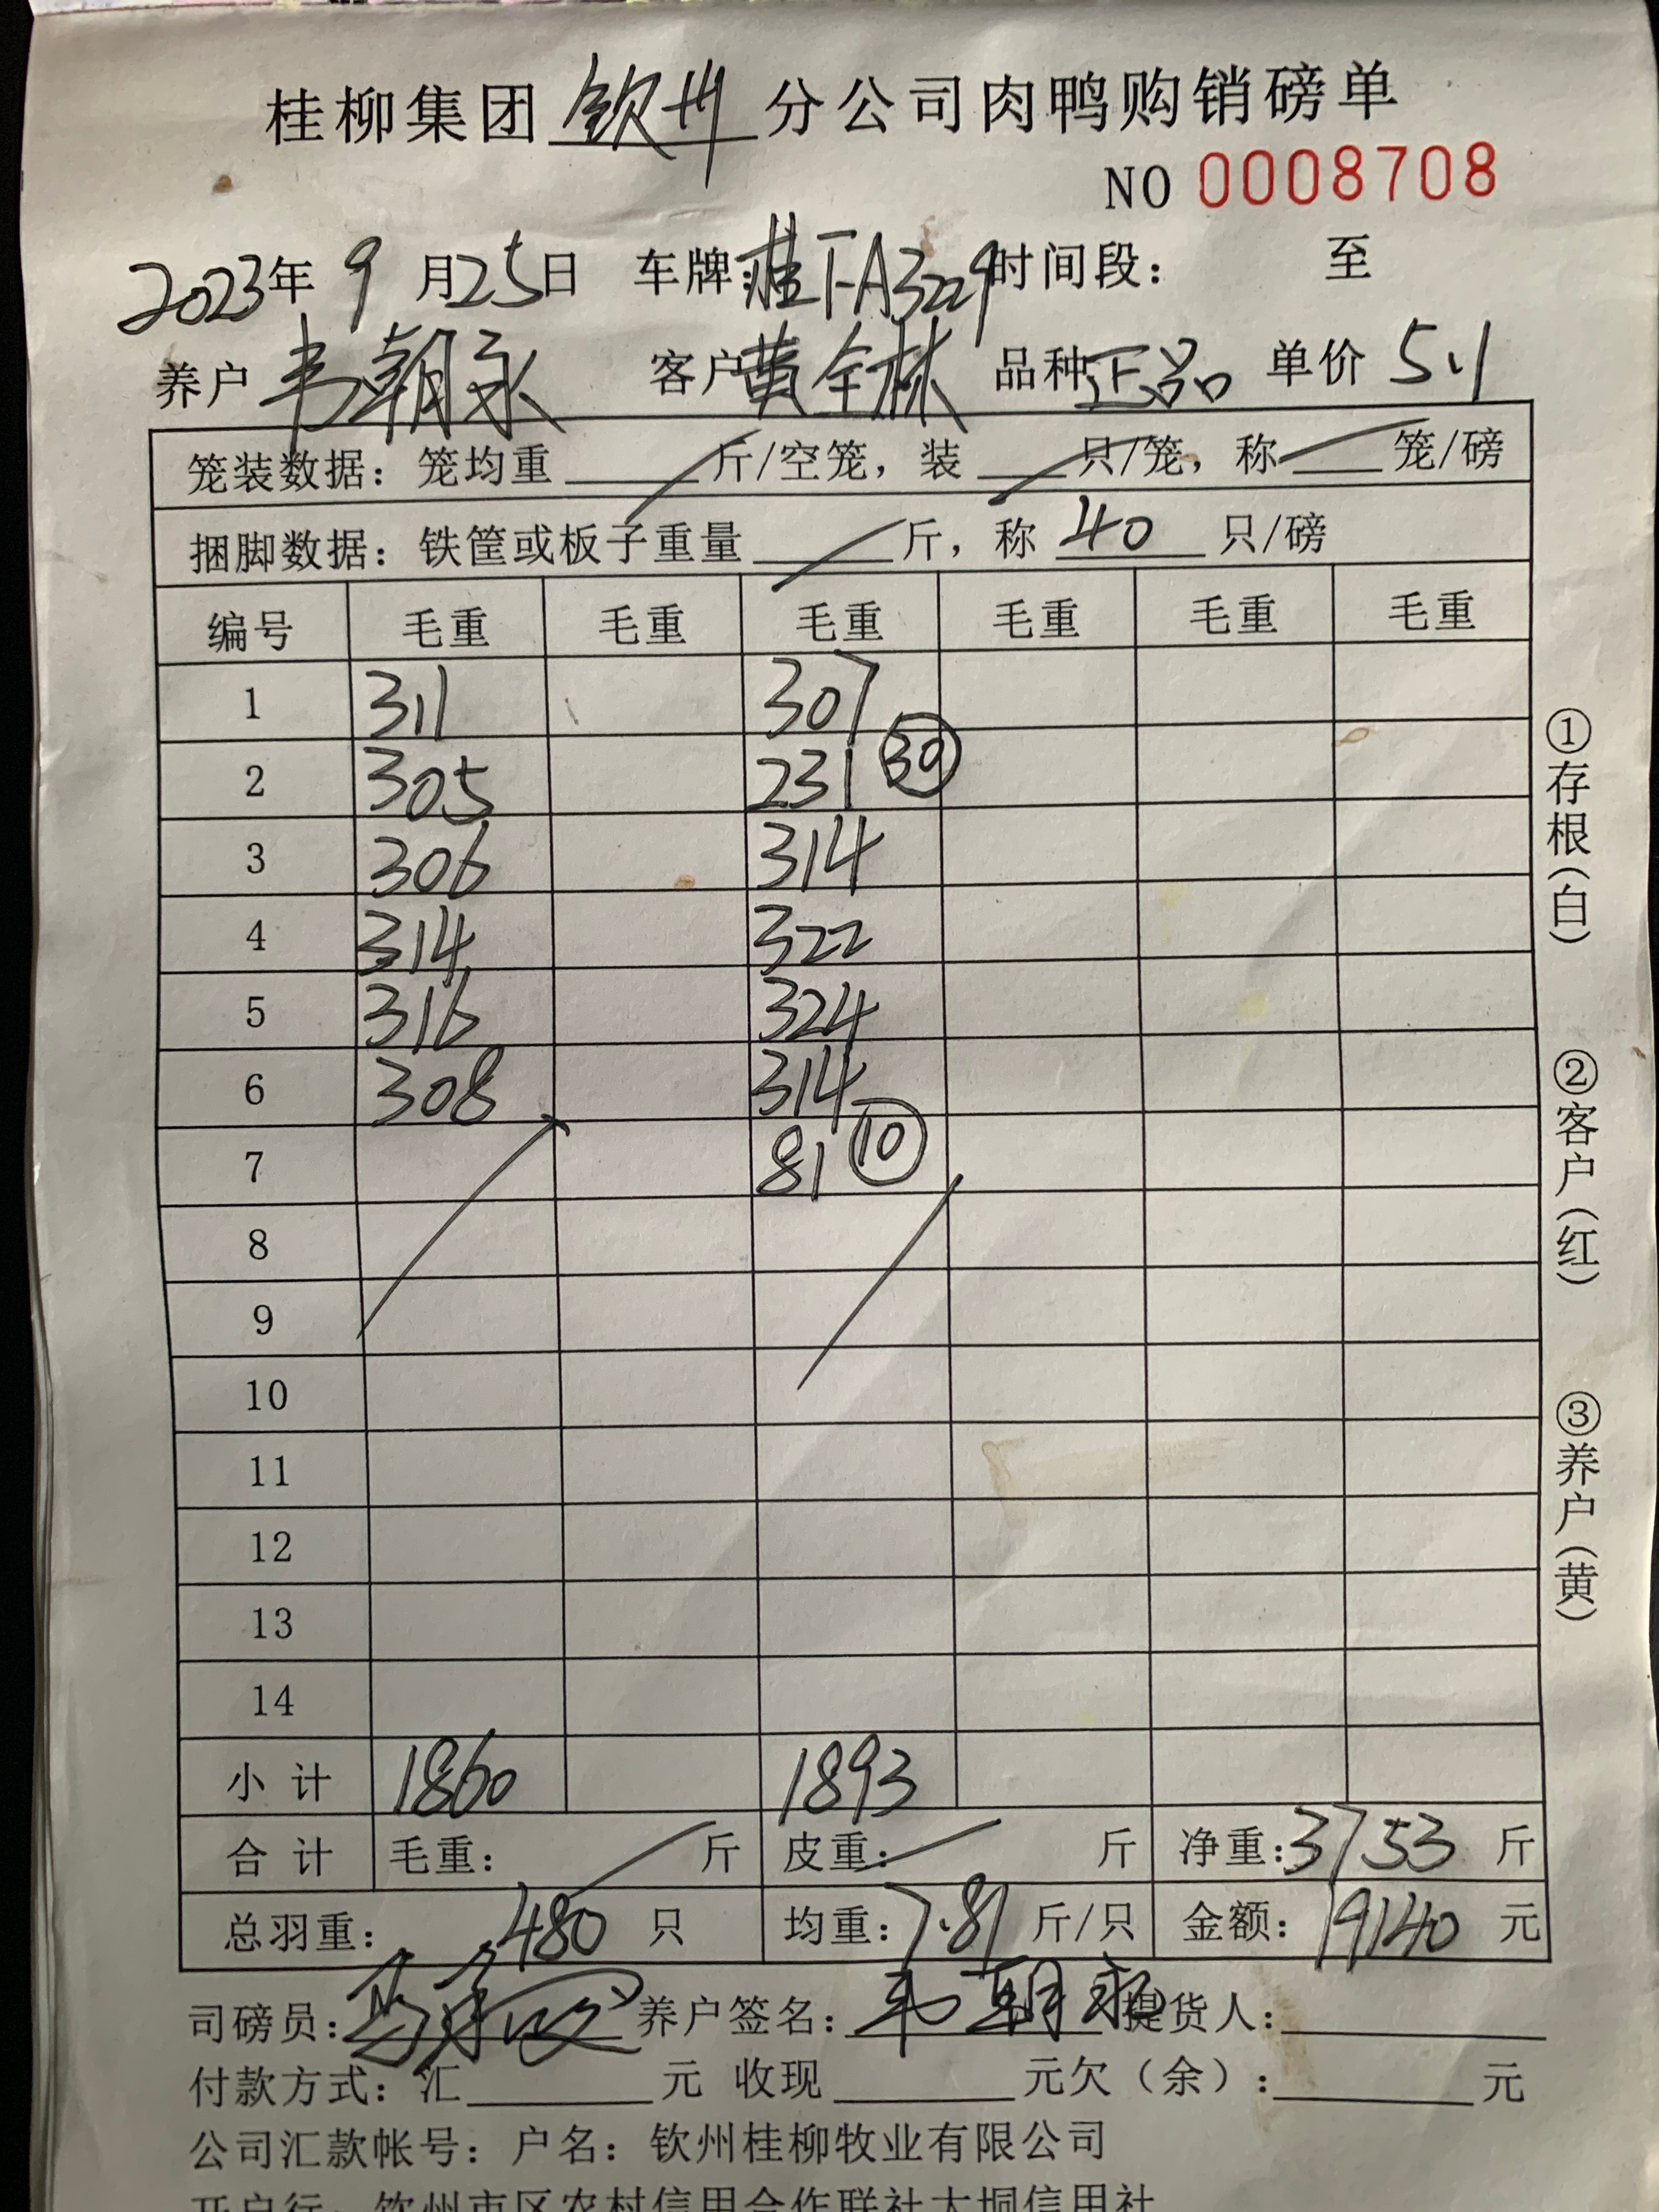 桂柳集团 钦州 分公司肉鸭购销磅单
NO 0008708
2023年 9 月25日 车牌:桂T-A3229 时间段: 至
养户 韦朝永 客户 黄全林 品种 正品 单价 5.1
笼装数据: 笼均重 斤/空笼, 装 只/笼, 称 笼/磅
捆脚数据: 铁筐或板子重量 斤, 称 40 只/磅
编号 毛重 毛重 毛重 毛重 毛重 毛重
1 311 307
2 305 231 ㉚
3 306 314
4 314 322
5 316 324
6 308 314
7 81 ⑩
8
9
10
11
12
13
14
小计 1860 1893
合计 毛重: 斤 皮重: 斤 净重:3753 斤
总羽重: 480 只 均重:7.81 斤/只 金额: 19140 元
司磅员: 养户签名: 韦朝永 提货人:
付款方式: 汇 元 收现 元欠(余): 元
公司汇款帐号: 户名: 钦州桂柳牧业有限公司
开户行: 钦州市区农村信用合作联社大垌信用社
①存根(白)
②客户(红)
③养户(黄)